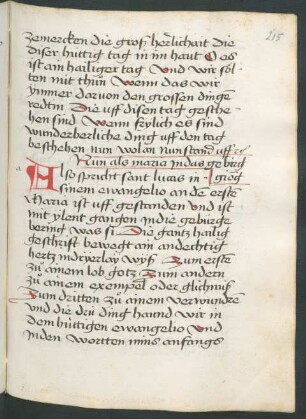 215
zemercken die groß herlichait die
diser hüttig tag in im haut O es
ist ain hailiger tag Vnd wir söl-
ten mit thůn wenn das wir
ymmer daruon den grossen dingē
redtin Die vff disen tag gesche-
hen sind Wenn seylich es sind
wunderberliche ding vff den tag
beschehen nun wol an nun stand vff
Nun als maria in das gebirg
Also spricht sant lucas in gieng
sinem ewangelio an dē erste
Maria ist vff gestanden vnd ist
mit ylent gangen in die gebürge
bering was si Die gantz hailig
geschrift bewegt ain andechtig
hertz in dryerlay wyß Zum erste
zů ainem lob gotz Zum andern
zů ainem exempel oder glichnuß
Zum dritten zů ainem verwundrē
vnd die drü ding haund wir in
dem hüttigen ewangelio Vnd
in den wortten mins anfangs